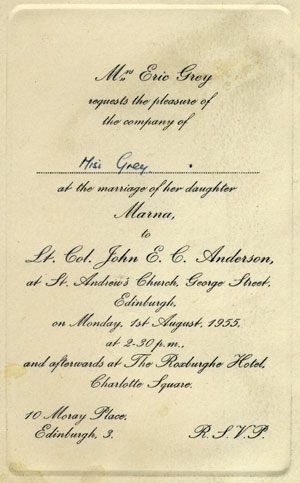 Mrs Eric Grey
requests the pleasure of
the company of
Miss Grey.
at the marriage of her daughter
Marna,
to
Lt. Col. John E. C. Anderson,
at St. Andrew's Church, George Street,
Edinburgh,
on Monday, 1st August, 1955,
at 2-30 p.m.,
and afterwards at The Roxburghe Hotel,
Charlotte Square.
10 Moray Place,
Edinburgh, 3. R.S.V.P.